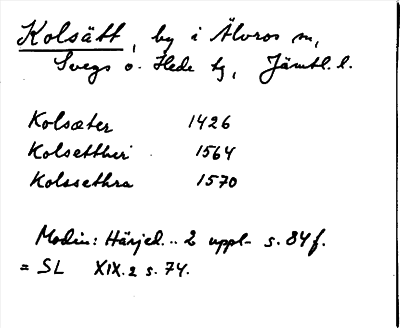 Kolsätt, by i Älvros sn,
Svegs o. Hede tg, Jämtl. l.
Kolsæter 1426
Kolsetther 1564
Kolssethra 1570
Modin: Härjed... 2 uppl. s. 84 f.
= SL XIX. 2 s. 74.